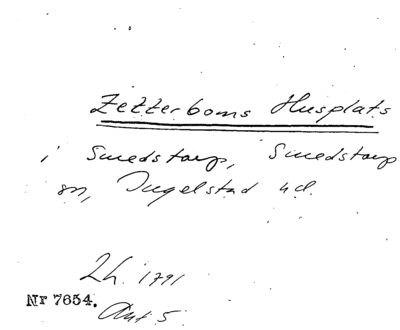 Zetterboms Husplats
i Smedstorp, Smedstorp
sn, Ingelstad hd.
2h. 1791
Nr 7654.
Akt 5